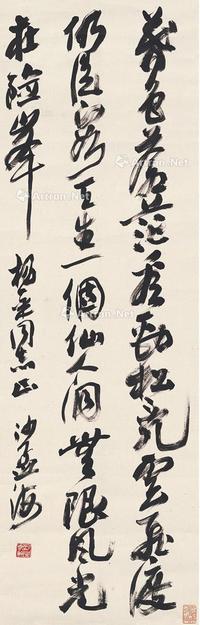 暮色苍茫看劲松乱云飞渡
仍从容天生一个仙人洞無限风光
在险峰 杨平同志正 沙孟海
Artron.Net
Artron.Net
Artron.Net
Artron.Net